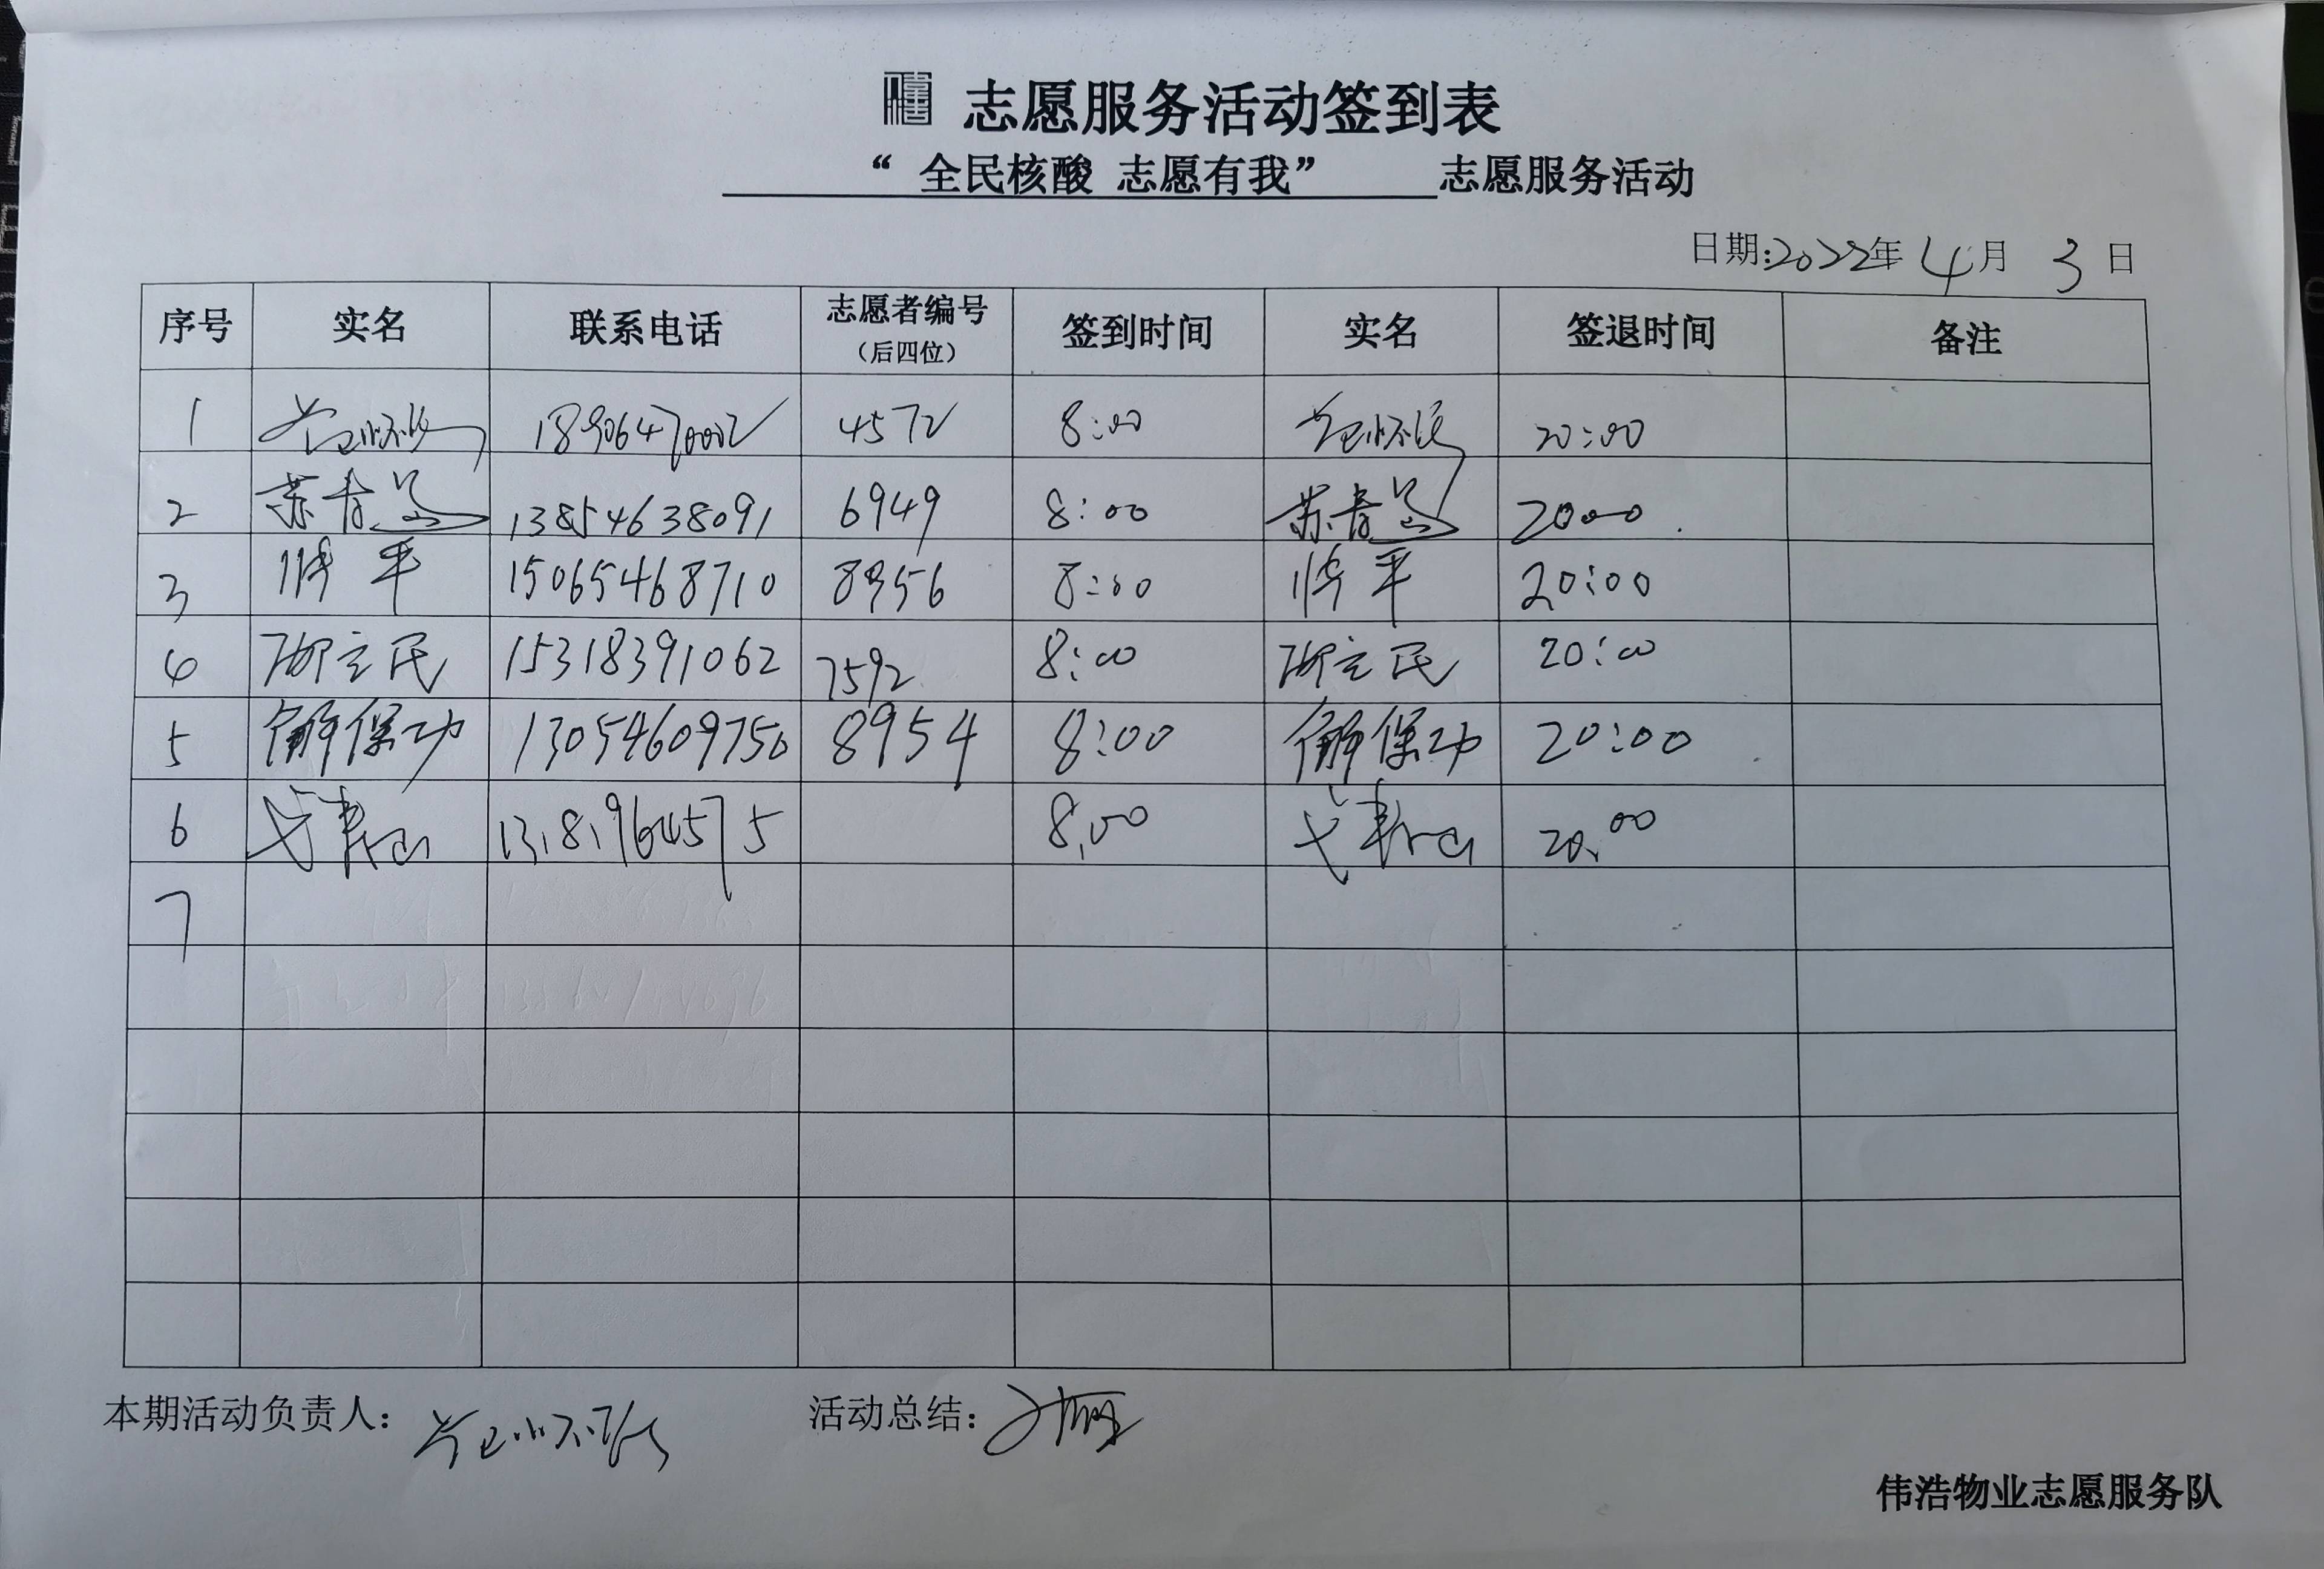 志愿服务活动签到表
“ 全民核酸 志愿有我” 志愿服务活动
日期:2022年 4月 3日
序号 实名 联系电话 志愿者编号（后四位） 签到时间 实名 签退时间 备注
1 18906470002 4572 8:00 20:00
2 苏青 13854638091 6949 8:00 苏青 2000
3 平 15065468710 8956 8:00 平 20:00
4 立民 15318391062 7592 8:00 立民 20:00
5 解保功 13054609750 8954 8:00 解保功 20:00
6 13181964575 8,00 20.00
7
本期活动负责人： 活动总结：
伟浩物业志愿服务队